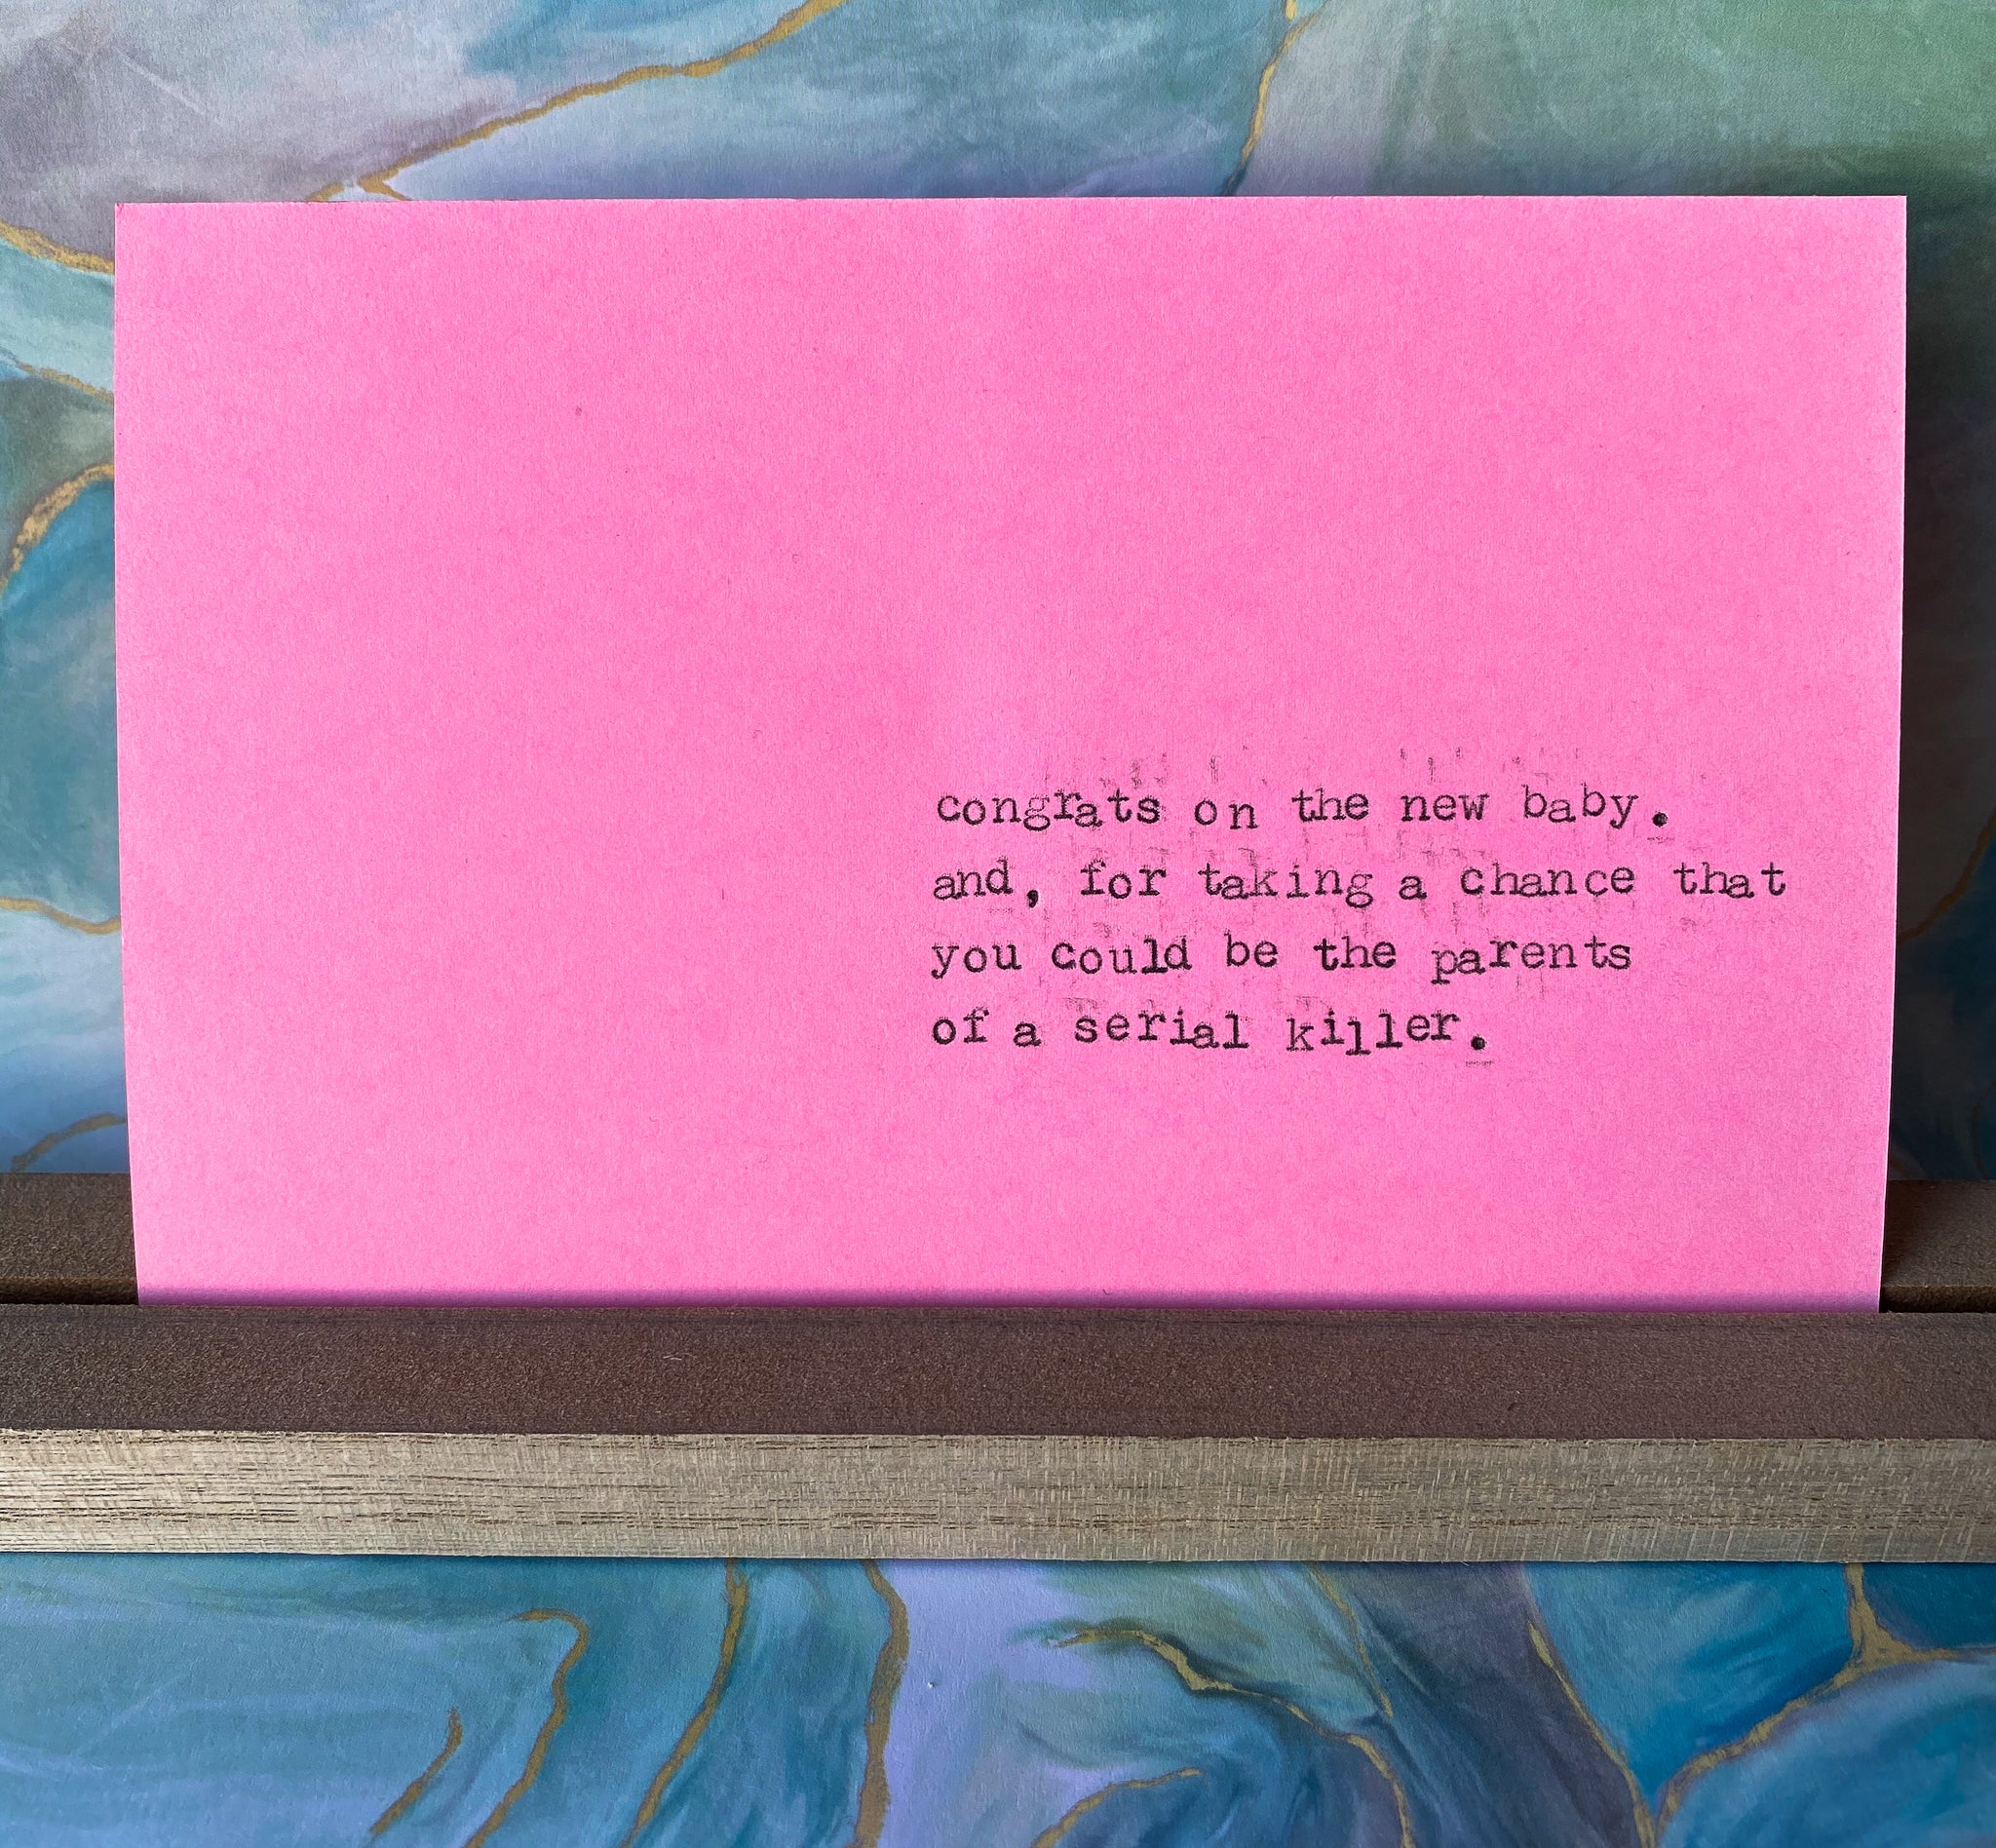 congrats on the new baby.
and, for taking a chance that
you could be the parents
of a serial killer.